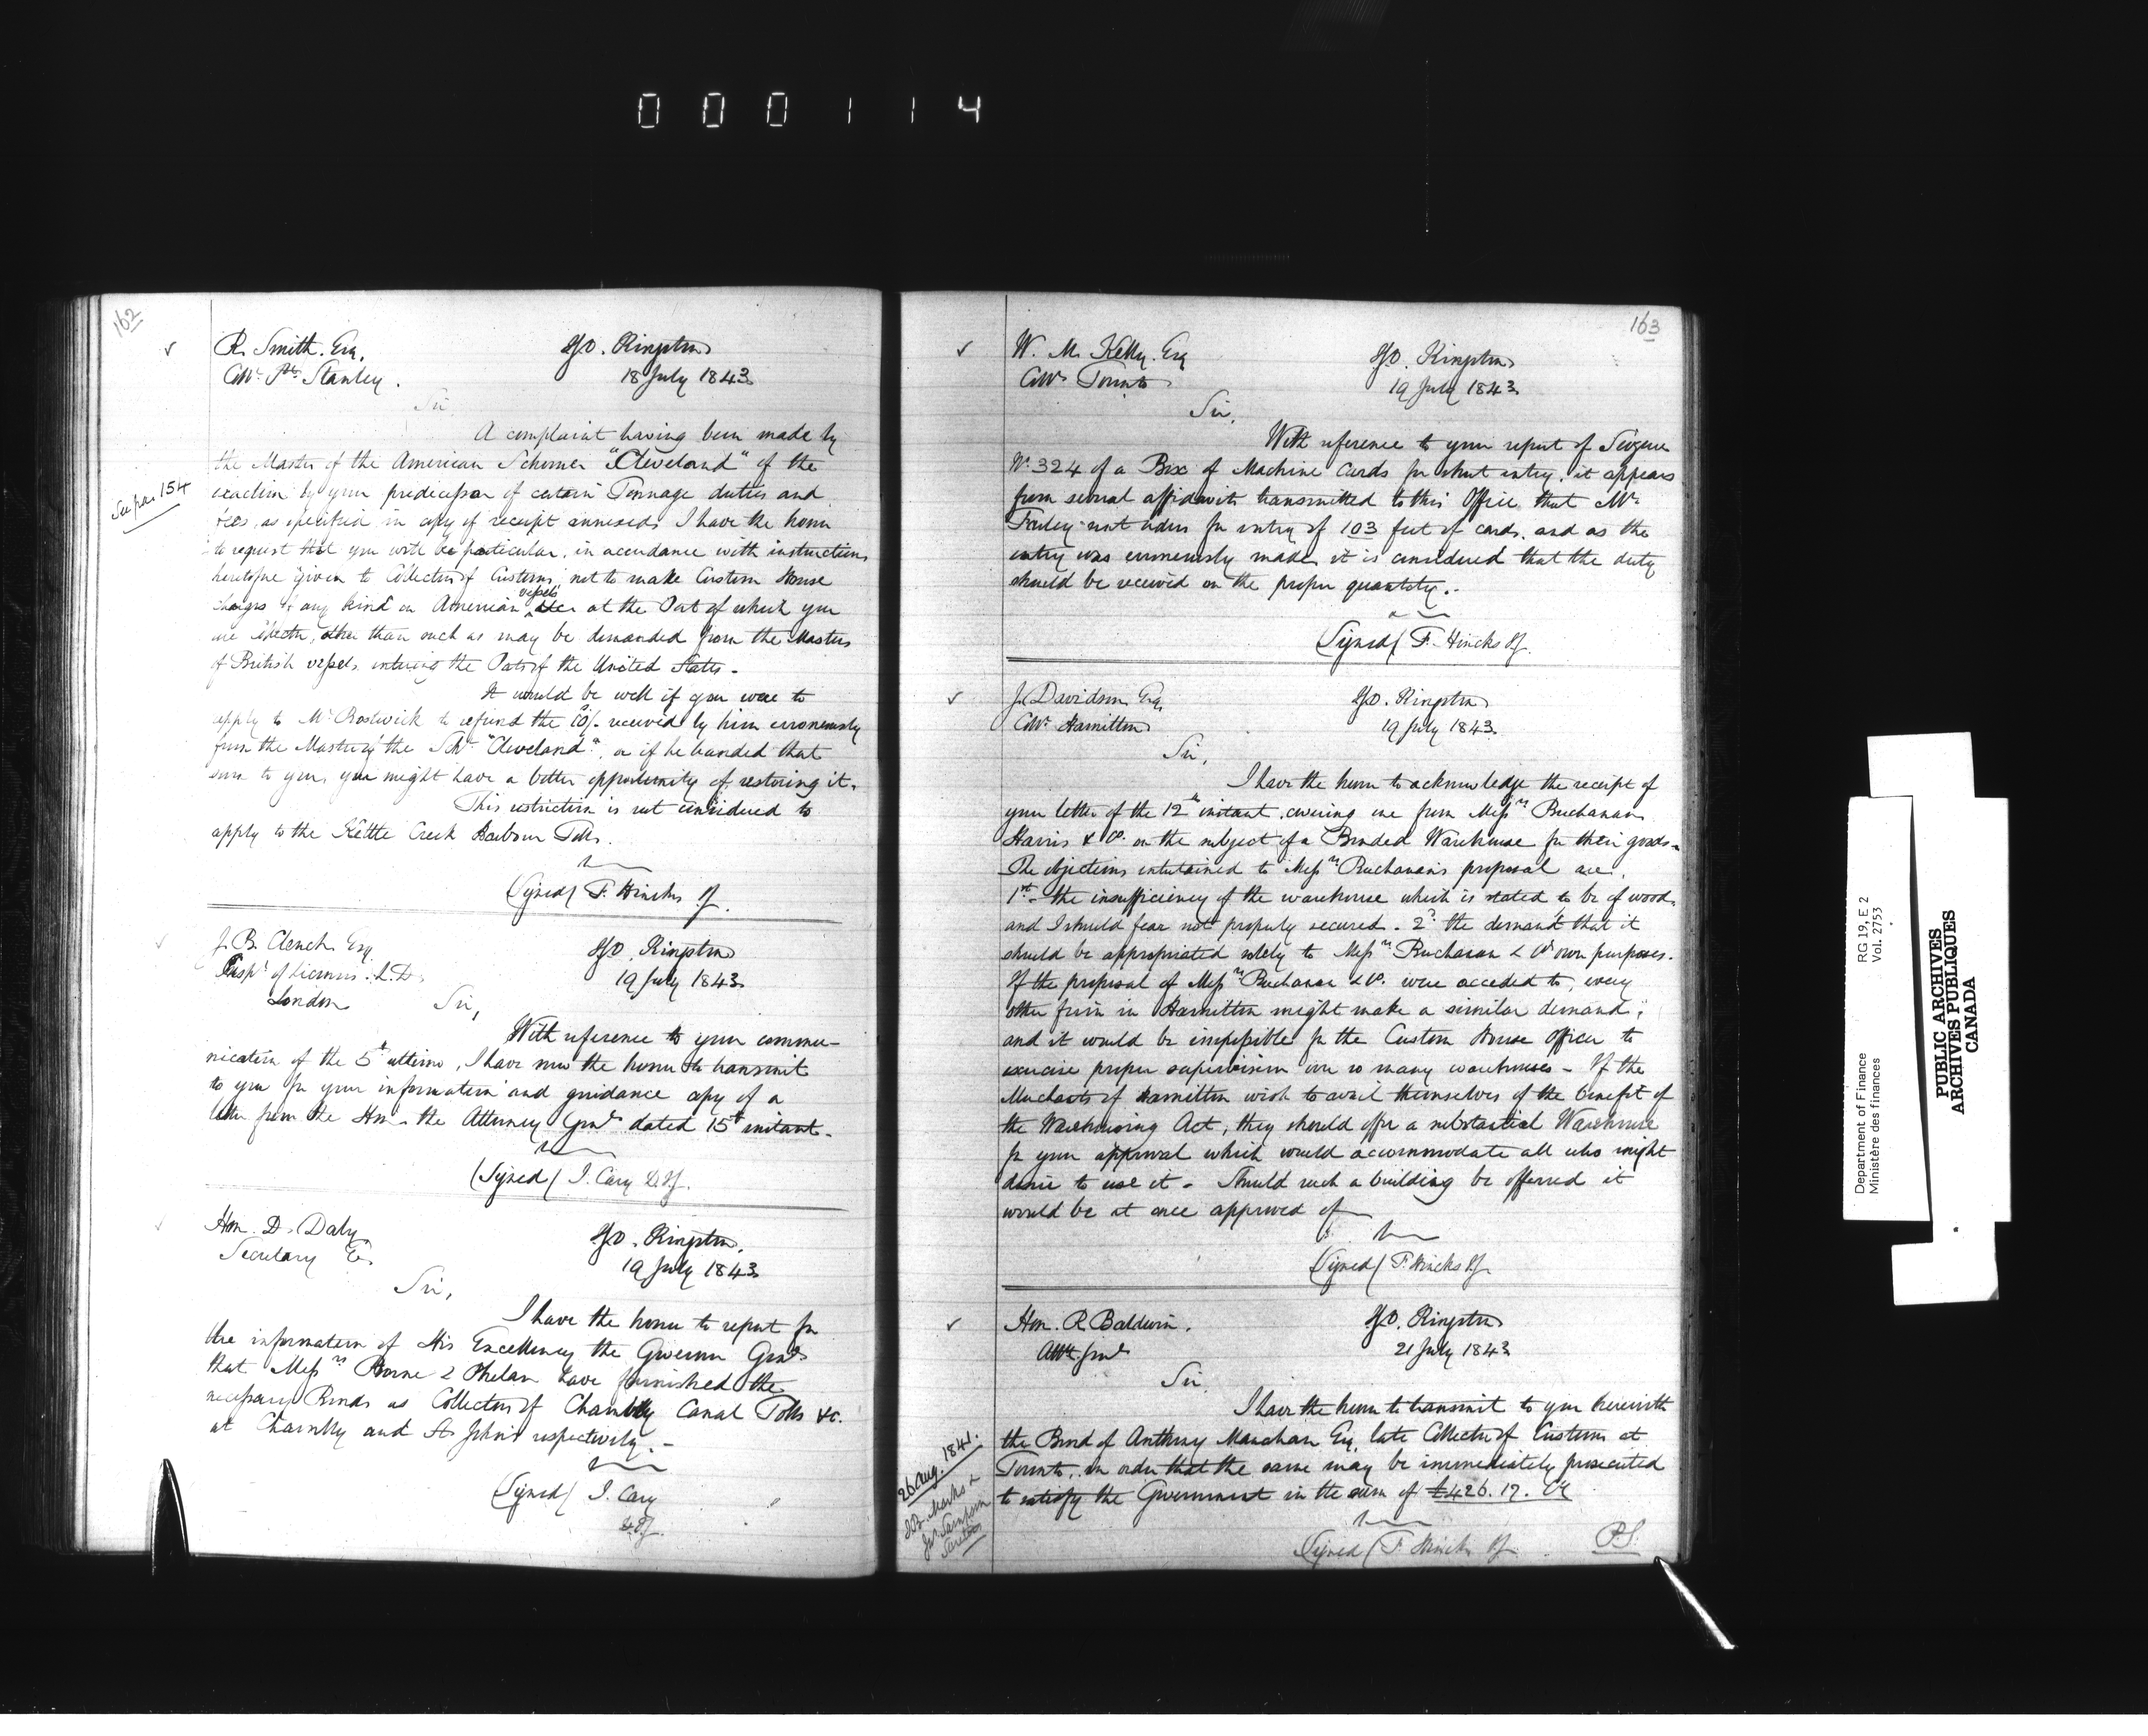 000114
162
R. Smith. Esq.
Collr Pt. Stanley.
IGO. Kingston
18 July 1843
Sir
A complaint having been made by
the Master of the American Schooner "Cleveland" of the
exaction by your predecessor of certain Tonnage duties and
fees, as specified in copy of receipt annexed, I have the honor
to request that you will be particular, in accordance with instructions
heretofore given to Collectors of Customs, not to make Custom House
charges of any kind on American vessels at the Port of which you
are Collector, other than such as may be demanded from the Masters
of British vessels entering the Ports of the United States -
See page 154
It would be well if you were to
apply to Mr Bostwick to refund the 10/- received by him erroneously
from the Master of the Schr "Cleveland", or if he handed that
sum to you, you might have a better opportunity of restoring it.
This restriction is not considered to
apply to the Kettle Creek Harbour Tolls.
(Signed) F. Hincks IG.
J. B. Clench Esq
Inspr of Licenses. L.D.
London
IGO. Kingston
19 July 1843
Sir,
With reference to your commu-
nication of the 5th ultimo, I have now the honor to transmit
to you for your information and guidance copy of a
letter from the Hon. the Attorney Genl dated 15th instant.
(Signed) J. Cary D.IG.
Hon. D. Daly
Secretary
IGO. Kingston.
19 July 1843
Sir,
I have the honor to report for
the information of His Excellency the Governor Genl
that Messrs & Phelan have furnished the
necessary Bonds as Collectors of Chambly Canal Tolls &c.
at Chambly and St Johns respectively. -
(Signed) J. Cary
D.IG.
163
W. M. Kelly. Esq
Collr Toronto
IGO. Kingston
19 July 1843
Sir,
With reference to your report of Seizure
No 324 of a Box of Machine Cards for short entry, it appears
from several affidavits transmitted to this Office, that Mr
sent orders for entry of 103 feet of cards, and as the
entry was erroneously made it is considered that the duty
should be received on the proper quantity. -
(Signed) F. Hincks IG.
J. Davidson Esq.
Collr Hamilton
IGO. Kingston
19 July 1843
Sir,
I have the honor to acknowledge the receipt of
your letter of the 12th instant, covering one from Messrs Buchanan
Harris & Co. on the subject of a Bonded Warehouse for their goods -
The objections entertained to Messrs Buchanan's proposal are,
1st - the insufficiency of the warehouse which is stated to be of wood,
and I should fear not properly secured. 2d the demand that it
should be appropriated solely to Messrs Buchanan & Co own purposes.
If the proposal of Messrs Buchanan & Co. were acceded to, every
other firm in Hamilton might make a similar demand;
and it would be impossible for the Custom House Officer to
exercise proper supervision over so many warehouses - If the
Merchants of Hamilton wish to avail themselves of the benefit of
the Warehousing Act, they should offer a substantial Warehouse
for your approval which would accommodate all who might
desire to use it - Should such a building be offered it
would be at once approved of
(Signed) F. Hincks IG.
Hon. R Baldwin.
Atty. Genl
IGO. Kingston
21 July 1843
Sir
I have the honor to transmit to you herewith
the Bond of Anthony Manahan Esq. late Collector of Customs at
Toronto, in order that the same may be immediately prosecuted
to satisfy the Government in the sum of £426. 17.
26 Aug. 1841.
J. B. Marks &
Sampson
Sureties
(Signed) F. Hincks IG
P.S.
Department of Finance
Ministère des finances
RG 19, E 2
Vol. 2753
PUBLIC ARCHIVES
ARCHIVES PUBLIQUES
CANADA